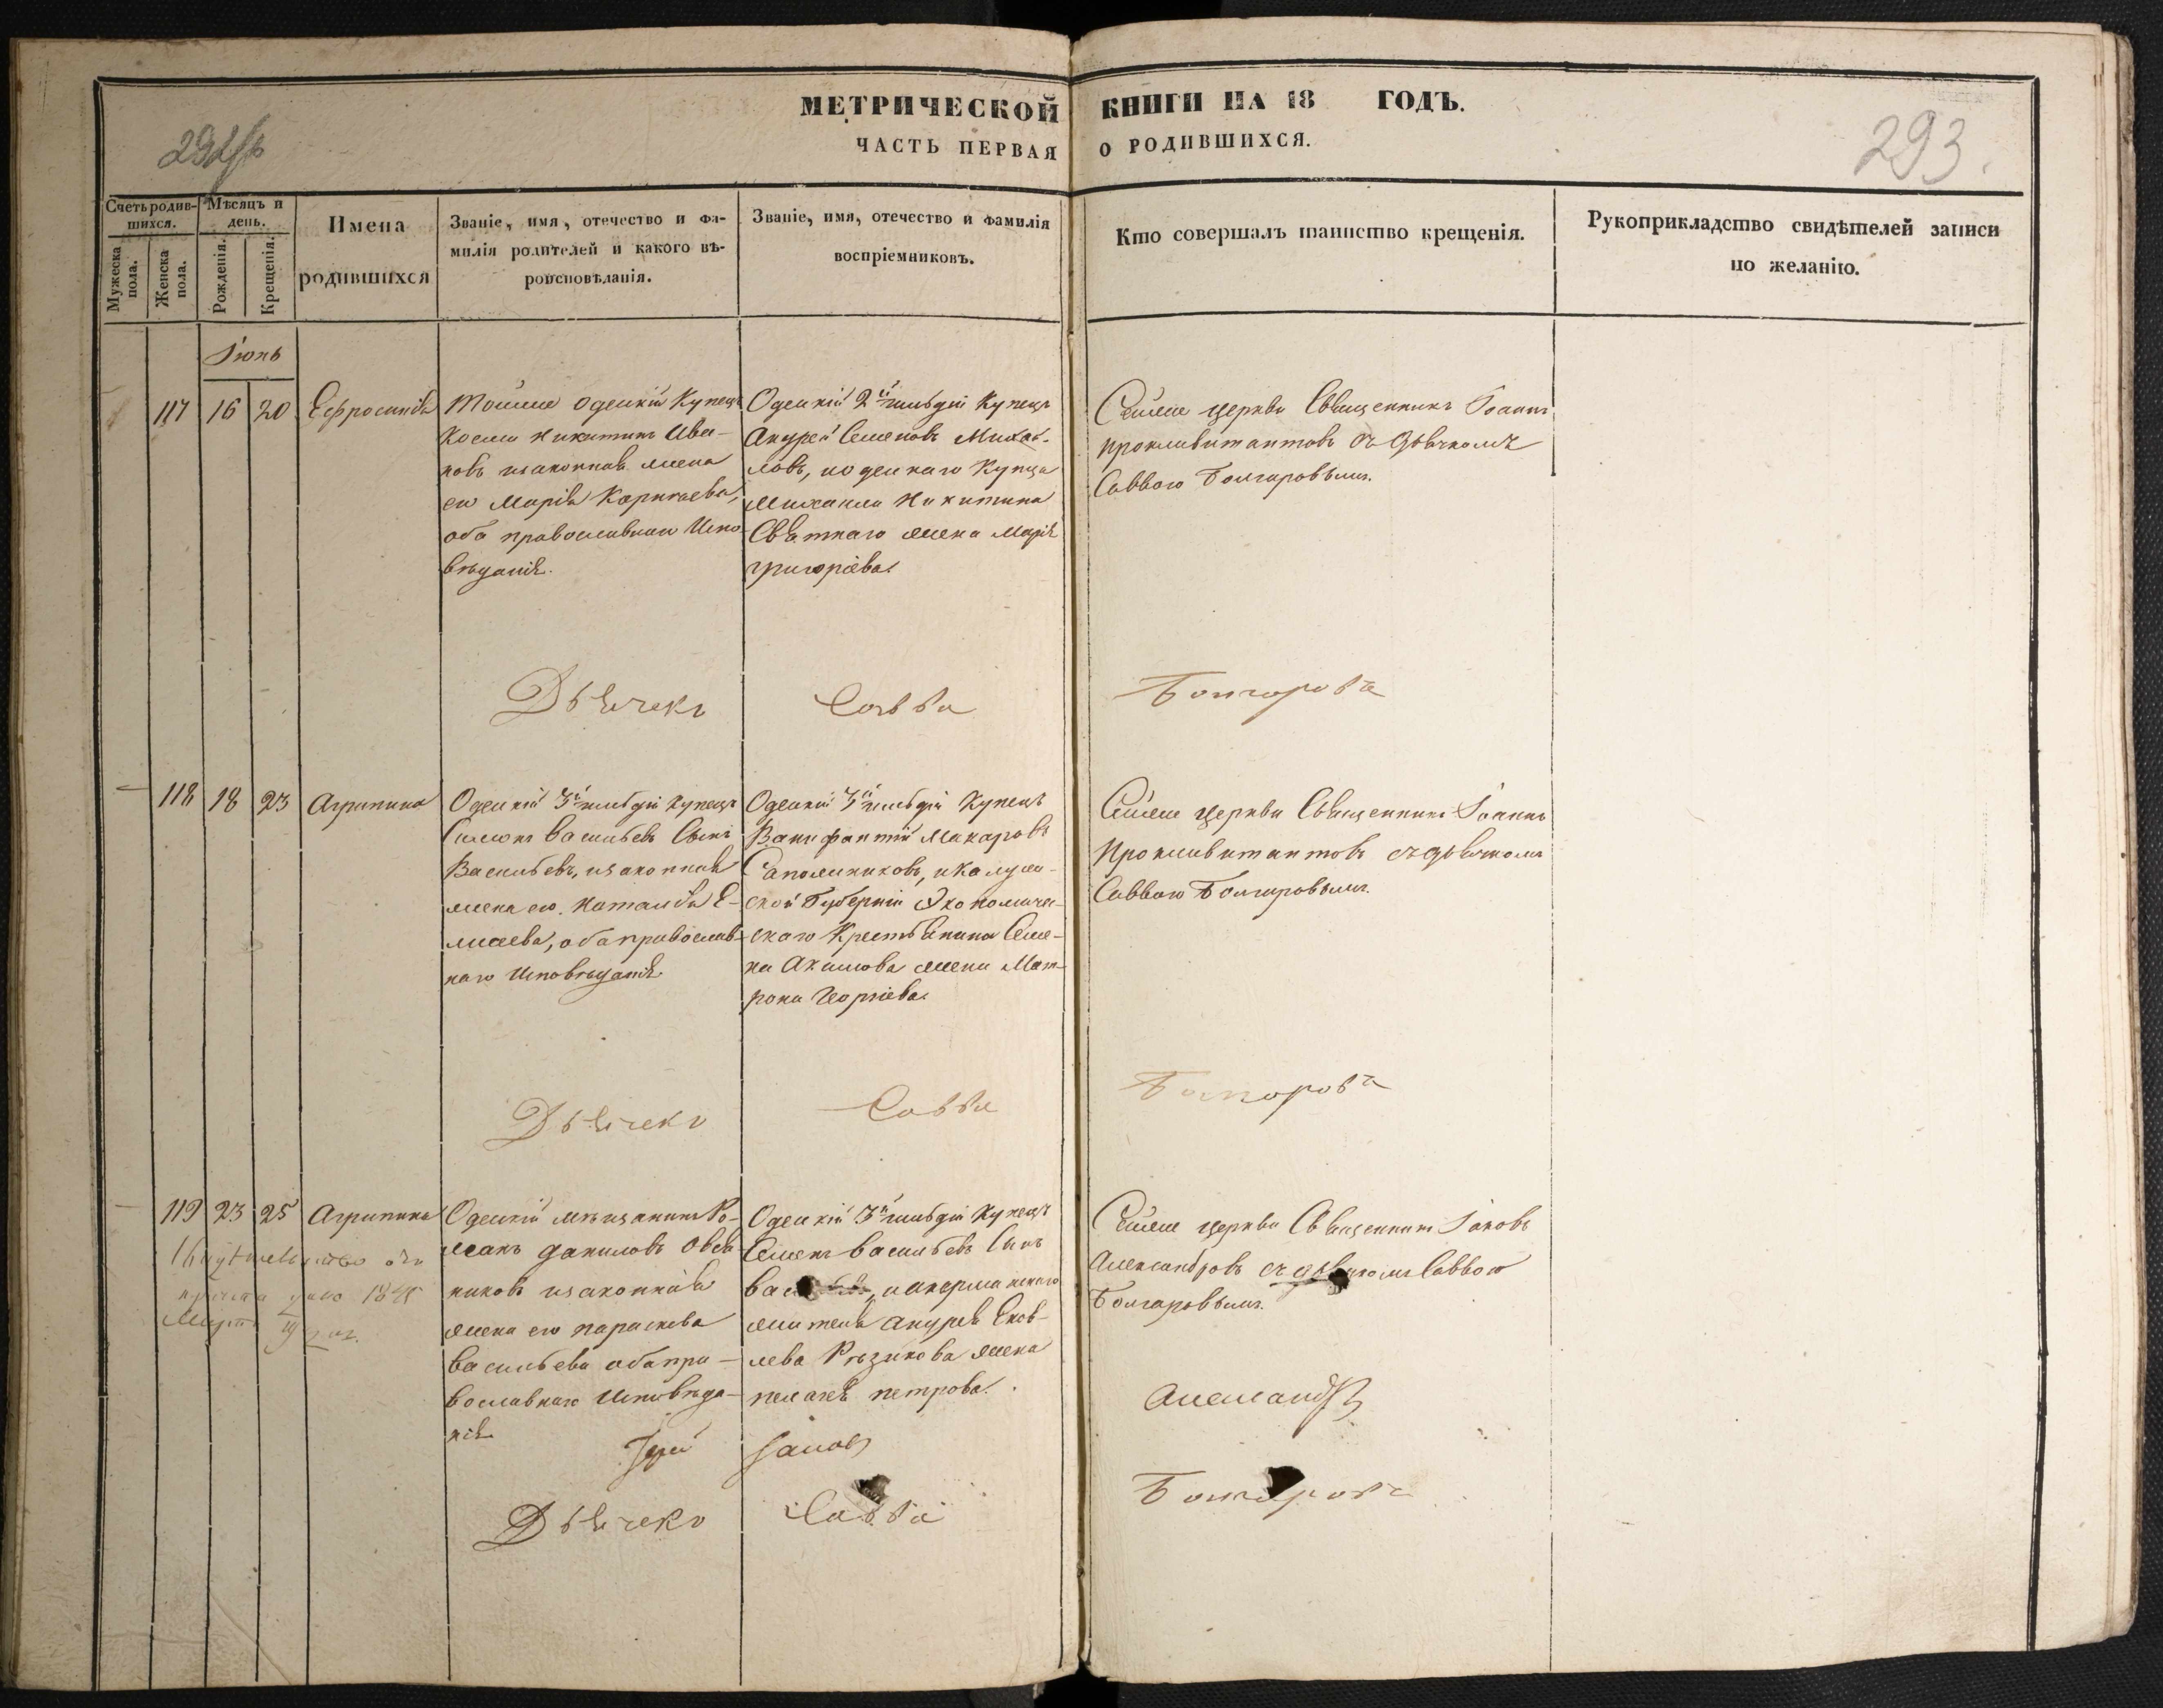 МЕТРИЧЕСКОЙ КНИГИ НА 18 ГОДЪ.
ЧАСТЬ ПЕРВАЯ О РОДИВШИХСЯ.
293.
Счетъ родив-
шихся.
Мужеска
пола.
Женска
пола.
Мѣсяцъ и
день.
Рожденія.
Крещенія.
Имена
родившихся
Званіе, имя, отечество и фа-
милія родителей и какого вѣ-
роисповѣданія.
Званіе, имя, отечество и фамилія
воспріемниковъ.
Кто совершалъ таинство крещенія.
Рукоприкладство свидѣтелей записи
по желанію.
Іюнь
117 16 20 Ефросинія
Тойже Одескій Купецъ
Косма Никитинъ Ива-
новъ изаконная жена
его Марія Карпiева,
оба православнаго Испо
вѣданія.
Одескій 2й гильдіи Купецъ
Андрей Семеновъ Михай-
ловъ, иодескаго Купца
Михаила Никитина
жена Марія
григоріева
Сейже церкви Священникъ Іоаннъ
съ дьячкомъ
Саввою Болгаровымъ.
Дьячекъ Савва Болгаровъ
118 18 23 Агрипина
Одескій 3й гильдіи Купецъ
Симеонъ Васильевъ Сынъ
Васильевъ, изаконная
жена его Наталія Е-
лисеева, оба православ-
наго Исповѣданія
Одескій 3й гильдіи Купецъ
Макаровъ
Сапожниковъ, иКалуж-
ской Губерніи Экономиче-
скаго Крестьянина Семе-
на Акимова жена Мат-
рона Георгіева
Сейже церкви Священникъ Іоаннъ
съдьячкомъ
Саввою Болгаровымъ.
Дьячекъ Савва Болгаровъ
119 23 25 Агрипина
Одескій мѣщанинъ Ро-
манъ Даниловъ Овся-
никовъ изаконная
жена его Параскева
Васильева обапра-
вославнаго Исповѣда-
нія
Одескій 3й гильдіи Купецъ
Семенъ Васильевъ Сынъ
иакерманскаго
жителя Андрея Яков-
лева Рѣзикова жена
пелагея петрова.
Сейже церкви Священникъ Іаковъ
Александровъ съ дьячкомъ Саввою
Болгаровымъ.
Іерей Іаковъ Александровъ
Дьячекъ Савва Болгаровъ